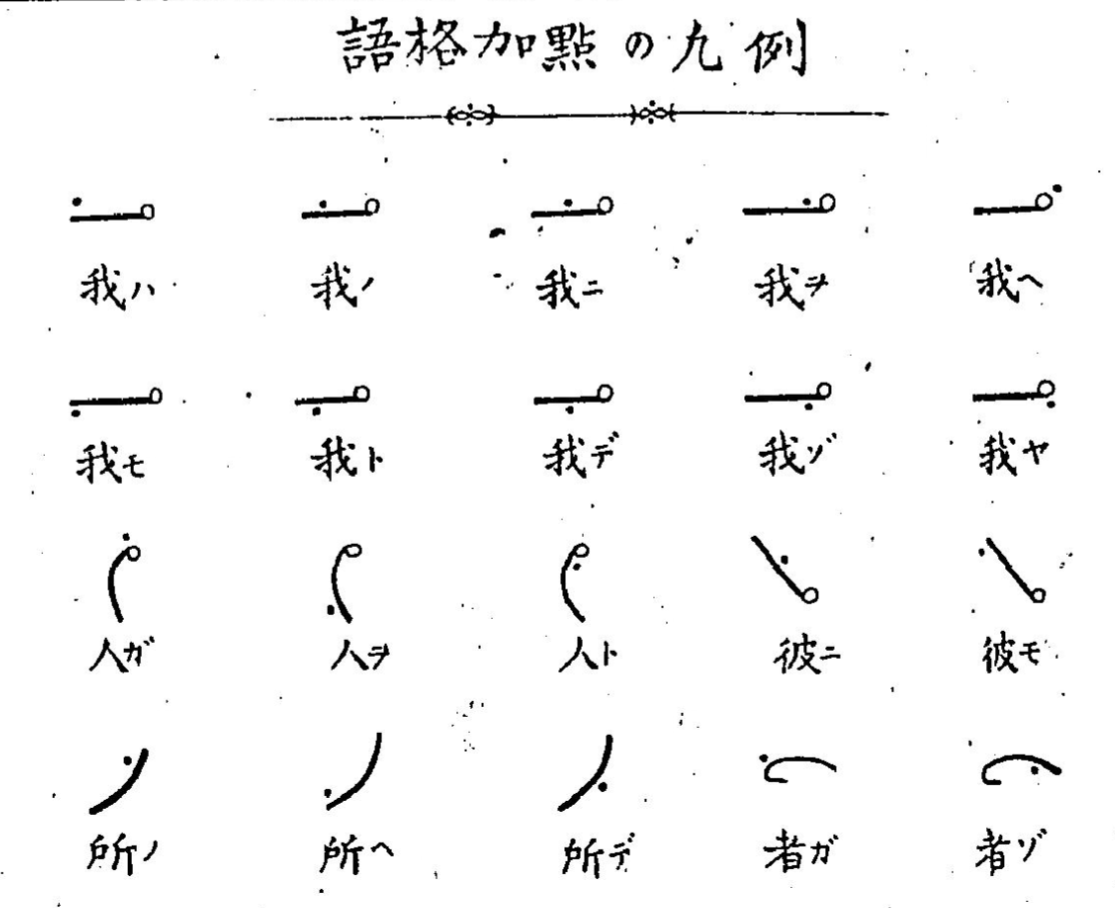 語格加點の九例
我ハ 我ノ 我ニ 我ヲ 我ヘ
我モ 我ト 我デ 我ゾ 我ヤ
人ガ 人ヲ 人ト 彼ニ 彼モ
所ノ 所ヘ 所デ 者ガ 者ゾ